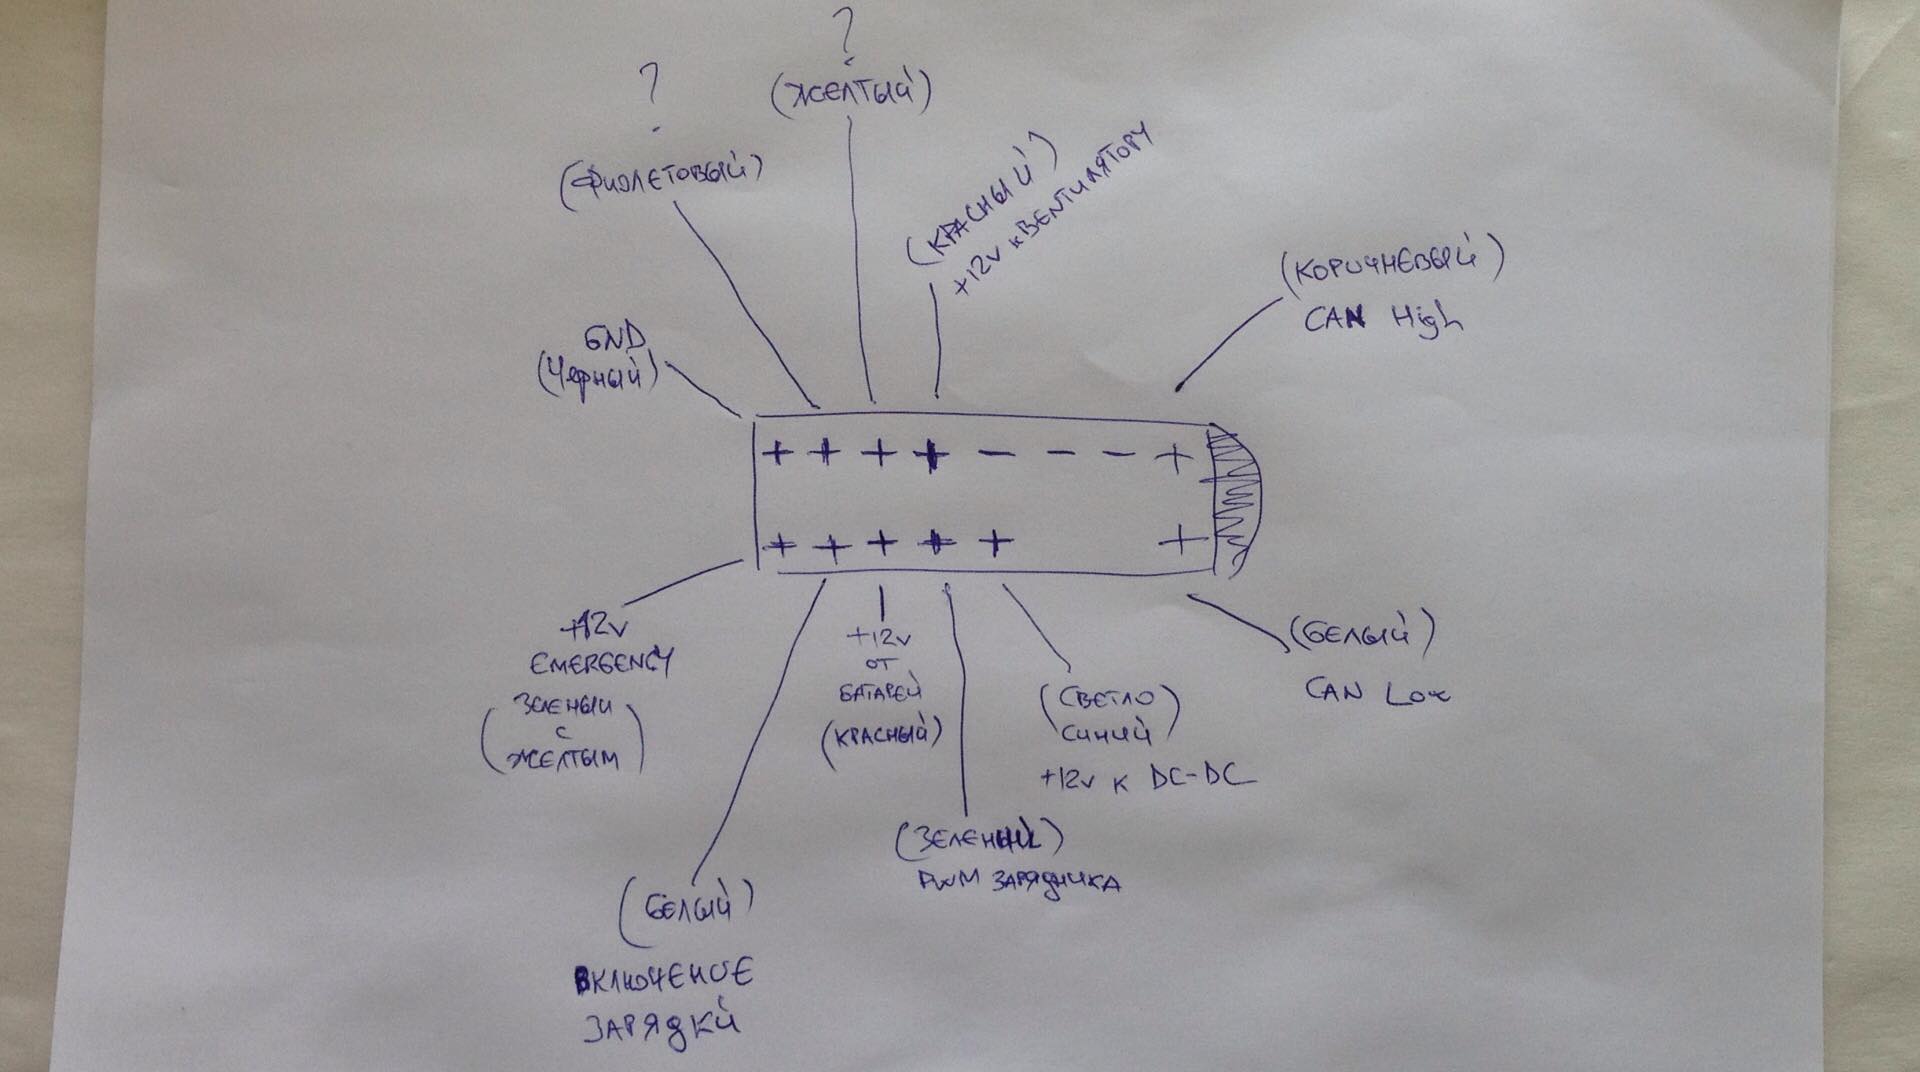 ?
(ЖЕЛТЫЙ)
?
(ФИОЛЕТОВЫЙ)
(КРАСНЫЙ)
+12v к ВЕНТИЛЯТОРУ
(КОРИЧНЕВЫЙ)
CAN High
GND
(Черный)
+ + + + - - - +
+ + + + + +
+12v
EMERGENCY
(ЗЕЛЕНЫЙ
С
ЖЕЛТЫМ)
+12v
ОТ
БАТАРЕЙ
(КРАСНЫЙ)
(СВЕТЛО
СИНИЙ)
+12v к DC-DC
(БЕЛЫЙ)
CAN Low
(ЗЕЛЕНЫЙ)
PWM ЗАРЯДНИКА
(БЕЛЫЙ)
ВКЛЮЧЕНИЕ
ЗАРЯДКЙ